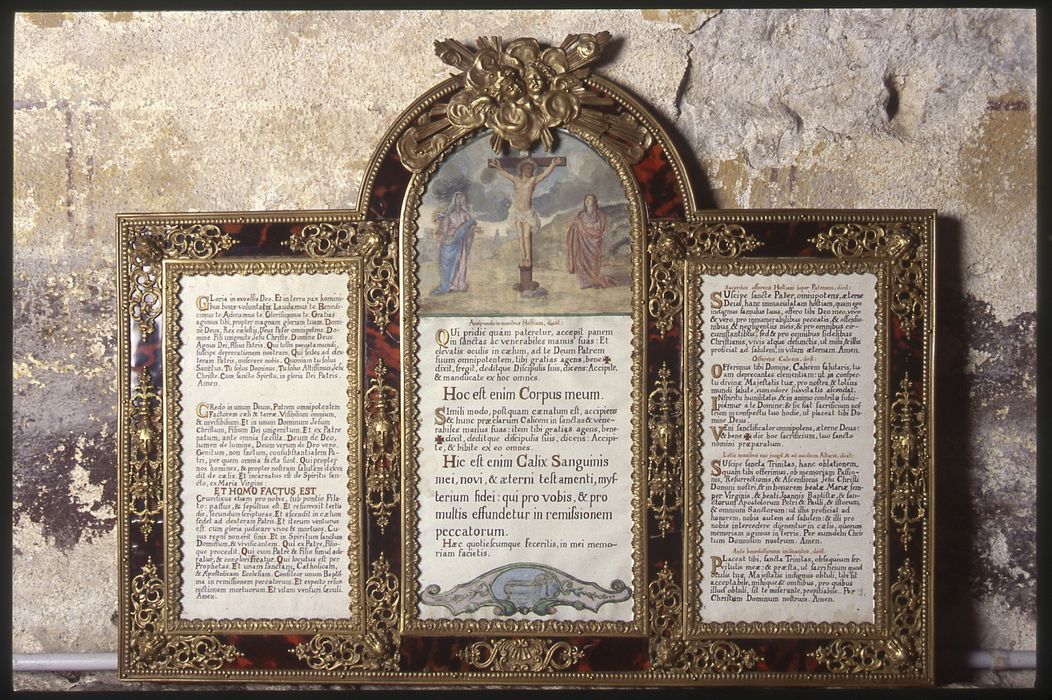 GLoria in excelsis Deo. Et in terra pax homini-
bus bonæ voluntatis Laudamus te. Benedi-
cimus te. Adoramus te. Glorificamus te. Gratias
agimus tibi, propter magnam gloriam tuam. Domi-
ne Deus, Rex cælestis, Deus Pater omnipotens. Do-
mine Fili unigenite Jesu Christe. Domine Deus
Agnus Dei, Filius Patris. Qui tollis peccata mundi,
suscipe deprecationem nostram. Qui sedes ad dex-
teram Patris, miserere nobis. Quoniam tu solus
Sanctus. Tu solus Dominus. Tu solus Altissimus, Jesu
Christe. Cum sancto Spiritu, in gloria Dei Patris.
Amen.
CRedo in unum Deum, Patrem omnipotentem
Factorem cæli & terræ. Visibilium omnium,
& invisibilium. Et in unum Dominum Jesum
Christum, Filium Dei unigenitum. Et ex Patre
natum, ante omnia sæcula. Deum de Deo,
lumen de lumine, Deum verum de Deo vero.
Genitum, non factum, consubstantialem Pa-
tri, per quem omnia facta sunt. Qui propter
nos homines, & propter nostram salutem descen
dit de cælis. Et incarnatus est de Spiritu san-
cto, ex Maria Virgine:
ET HOMO FACTUS EST
Crucifixus etiam pro nobis, sub pontio Pila-
to: passus, & sepultus est. Et resurrexit tertia
die, secundum scripturas. Et ascendit in cælum
sedet ad dexteram Patris. Et iterum venturus
est cum gloria judicare vivos & mortuos. Cu-
jus regni non erit finis. Et in Spiritum sanctum
Dominum, & vivificantem. Qui ex Patre, Filio-
que procedit. Qui cum Patre & Filio simul ado-
ratur, & conglorificatur. Qui locutus est per
Prophetas. Et unam sanctam, Catholicam,
& Apostolicam Ecclesiam. Confiteor unum Baptis-
ma in remissionem peccatorum. Et expecto resur-
rectionem mortuorum. Et vitam venturi sæculi.
Amen.
Accipiendo in manibus Hostiam, dicit:
QUi pridie quàm pateretur, accepit panem
in sanctas ac venerabiles manus suas: Et
elevatis oculis in cælum, ad te Deum Patrem
suum omnipotentem, tibi gratias agens, bene✠
dixit, fregit, deditque Discipulis suis, dicens: Accipite,
& manducate ex hoc omnes.
Hoc est enim Corpus meum.
SImili modo, postquam cænatum est, accipiens
& hunc præclarum Calicem in sanctas & vene-
rabiles manus suas: item tibi gratias agens, bene-
✠dixit, deditque discipulis suis, dicens: Accipi-
te, & bibite ex eo omnes.
Hic est enim Calix Sanguinis
mei, novi, & æterni testamenti, mys-
terium fidei: qui pro vobis, & pro
multis effundetur in remissionem
peccatorum.
Hæc quotiescumque feceritis, in mei memo-
riam facietis.
Sacerdos offerens Hostiam super Patenam, dicit:
SUscipe sancte Pater, omnipotens, æterne
Deus, hanc immaculatam hostiam, quam ego
indignus famulus tuus, offero tibi Deo meo, vivo
& vero, pro innumerabilibus peccatis, & offensio
nibus & negligentiis meis, & pro omnibus cir-
cumstantibus, sed & pro omnibus fidelibus
Christianis, vivis atque defunctis, ut mihi & illis
proficiat ad salutem, in vitam æternam. Amen.
Offerens Calicem, dicit:
OFferimus tibi Domine, Calicem salutaris, tu-
am deprecantes clementiam: ut in conspec-
tu divinæ Majestatis tuæ, pro nostra & totius
mundi salute, cum odore suavitatis ascendat.
IN spiritu humilitatis, & in animo contrito susci-
piamur a te Domine: & sic fiat sacrificium nos-
trum in conspectu tuo hodie, ut placeat tibi Do-
mine Deus.
VEni sanctificator omnipotens, æterne Deus:
& bene ✠ dic hoc sacrificium, tuo sancto
nomini præparatum.
SUscipe sancta Trinitas, hanc oblationem,
quam tibi offerimus, ob memoriam Passio-
nis, Resurrectionis, & Ascensionis Jesu Christi
Domini nostri, & in honorem beatæ Mariæ sem-
per Virginis, & beati Joannis Baptistæ, & san-
ctorum Apostolorum Petri & Pauli, & istorum,
& omnium Sanctorum: ut illis proficiat ad
honorem, nobis autem ad salutem: & illi pro
nobis intercedere dignentur in cælis, quorum
memoriam agimus in terris. Per eumdem Chris
tum Dominum nostrum. Amen.
Ante benedictionem inclinatus, dicit:
PLaceat tibi, sancta Trinitas, obsequium ser-
vitutis meæ: & præsta, ut sacrificium quod
oculis tuæ Majestatis indignus obtuli, tibi sit
acceptabile, mihique & omnibus, pro quibus
illud obtuli, sit te miserante, propitiabile. Per
Christum Dominum nostrum. Amen.